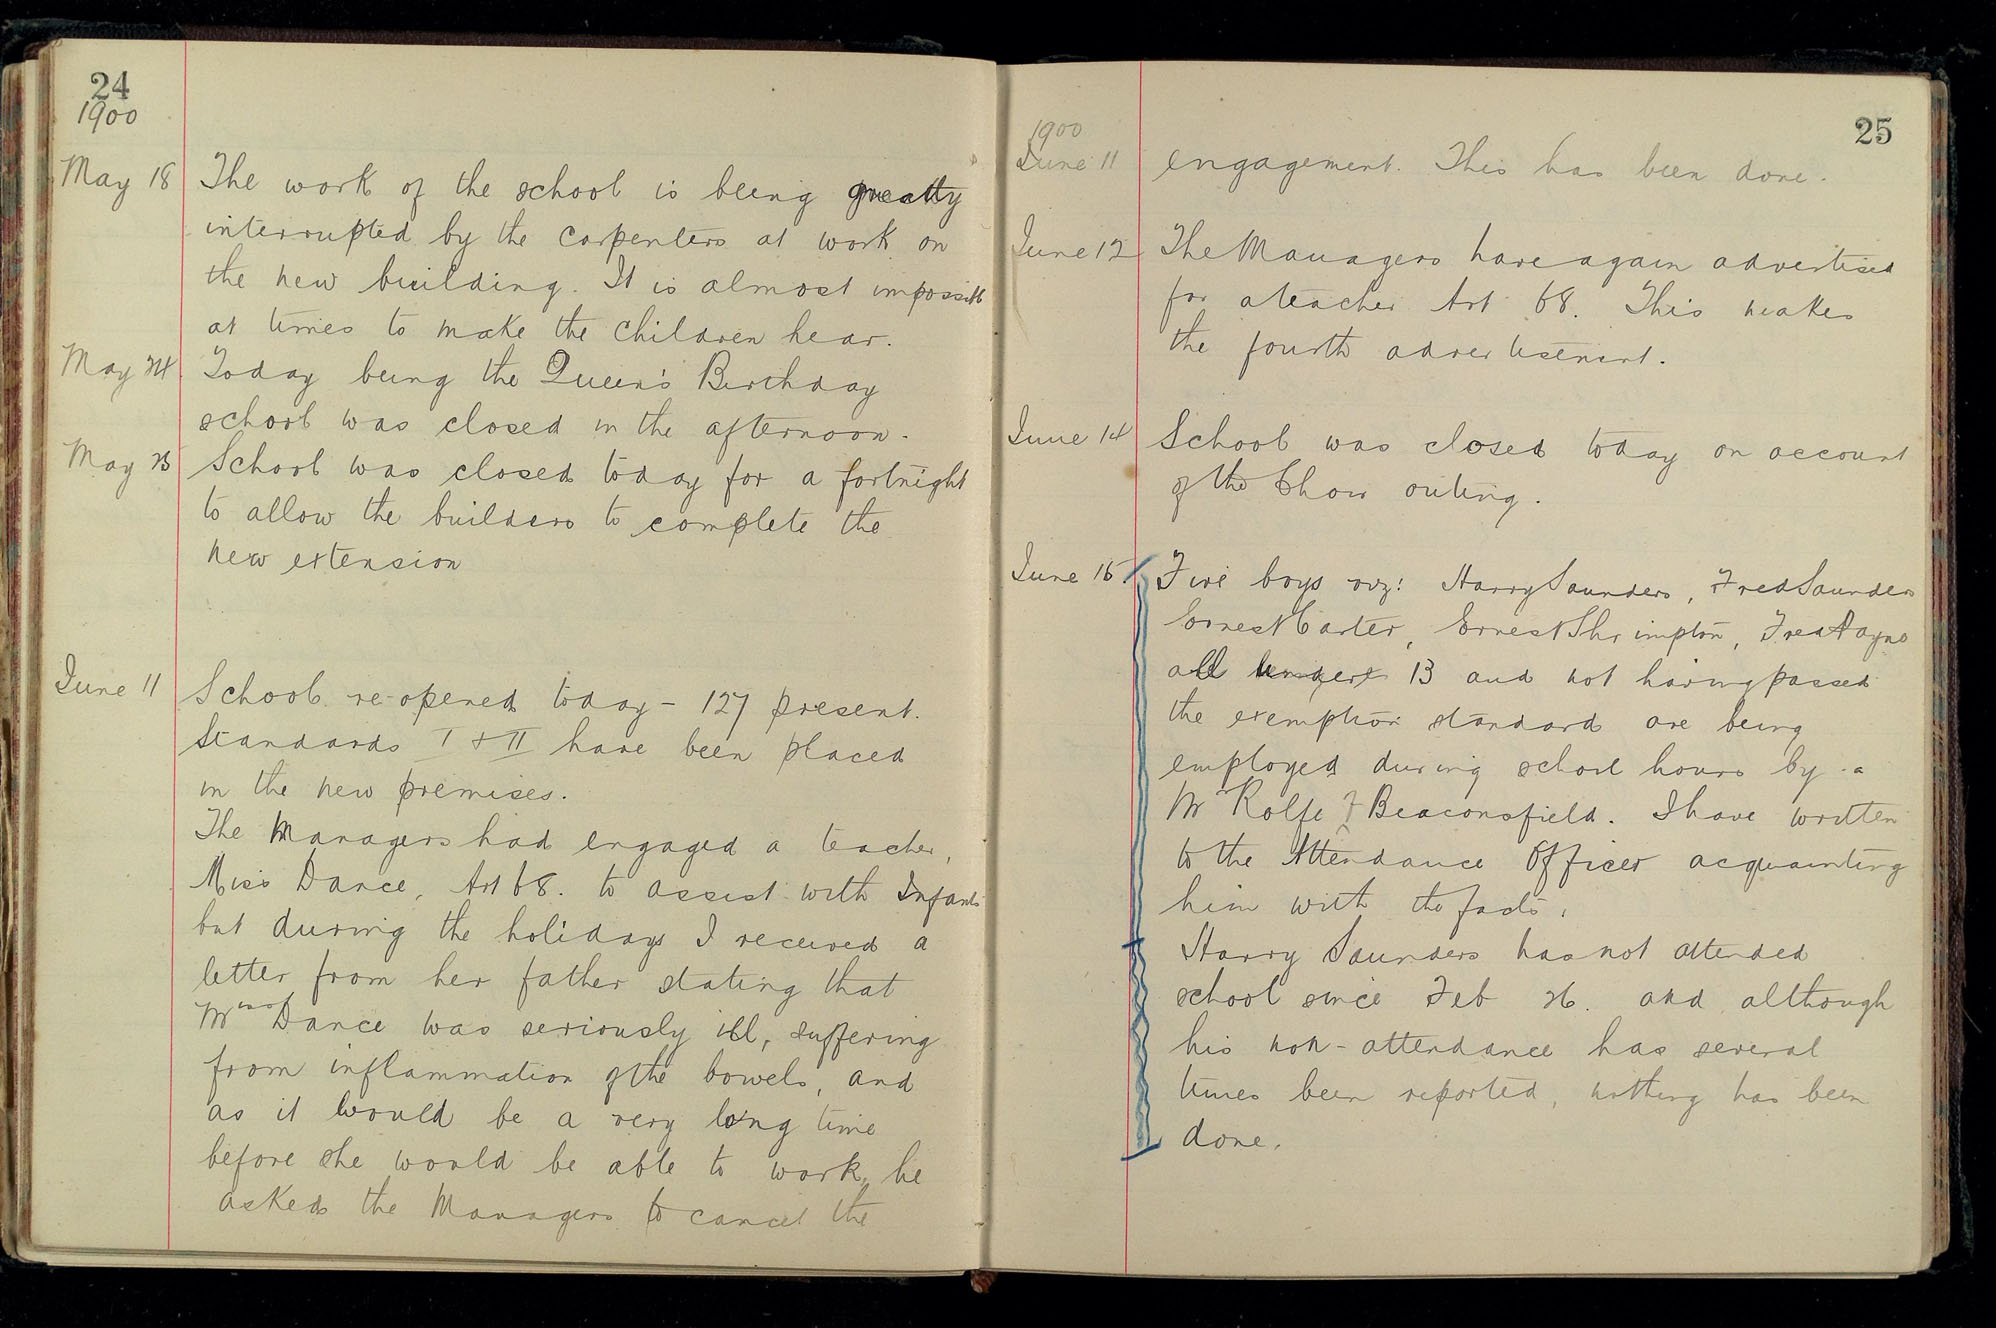 24
1900
May 18 The work of the school is being greatly
interrupted by the carpenters at work on
the new building. It is almost impossible
at times to make the children hear.
May 24 Today being the Queen's Birthday
school was closed in the afternoon.
May 25 School was closed today for a fortnight
to allow the builders to complete the
new extension
June 11 School re-opened today - 127 present.
Standards I & II have been placed
in the new premises.
The Managers had engaged a teacher,
Miss Dance, Art 68. to assist with Infants
but during the holidays I received a
letter from her father stating that
Miss Dance was seriously ill, suffering
from inflammation of the bowels, and
as it would be a very long time
before she would be able to work, he
asked the Managers to cancel the
25
1900
June 11 engagement. This has been done.
June 12 The Managers have again advertised
for a teacher Art 68. This makes
the fourth advertisement.
June 14 School was closed today on account
of the Choir outing.
June 15 Five boys viz: Harry Saunders, Fred Saunders
Ernest Carter, Ernest Shrimpton, Fred Payne
all under 13 and not having passed
the exemption standard are being
employed during school hours by a
Mr Rolfe of Beaconsfield. I have written
to the Attendance Officer acquainting
him with the facts.
Harry Saunders has not attended
school since Feb 26. and although
his non-attendance has several
times been reported, nothing has been
done.